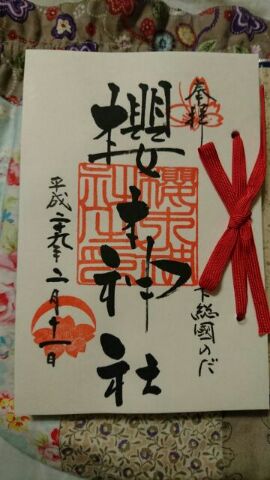 奉拝
下総國のだ
櫻木神社
平成二十九年二月十一日